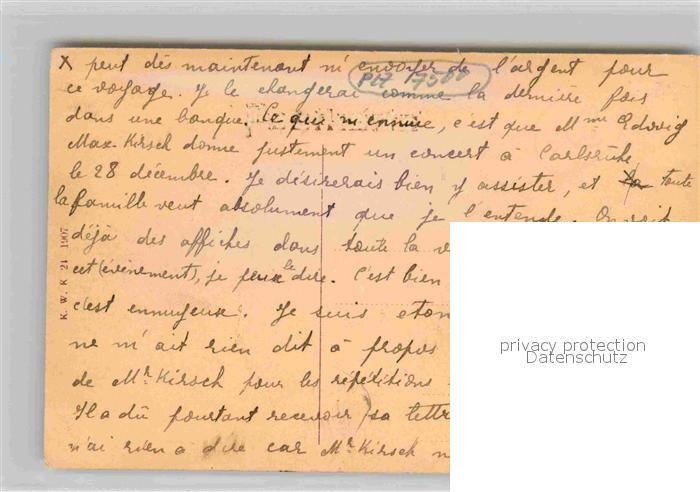 X peut dès maintenant m'envoyer de l'argent pour
ce voyage. Je le changerai comme la dernière fois
dans une banque. Ce qui m'ennuie, c'est que Mme Edwig
Max-Kirsch donne justement un concert à Carlsruhe
le 28 décembre. Je désirerais bien y assister, et toute
la famille veut absolument que je l'entende. On voit
déjà des affiches dans toute la v
cet (événement), je peux le dire. C'est bien
c'est ennuyeux. Je suis eton
ne m'ait rien dit à propos
de Mr Kirsch pour les répétitions
Il a dû pourtant recevoir sa lettr
n'ai rien a dire car Mr Kirsch n
PH 7500
K. W. K 24 1907
privacy protection
Datenschutz